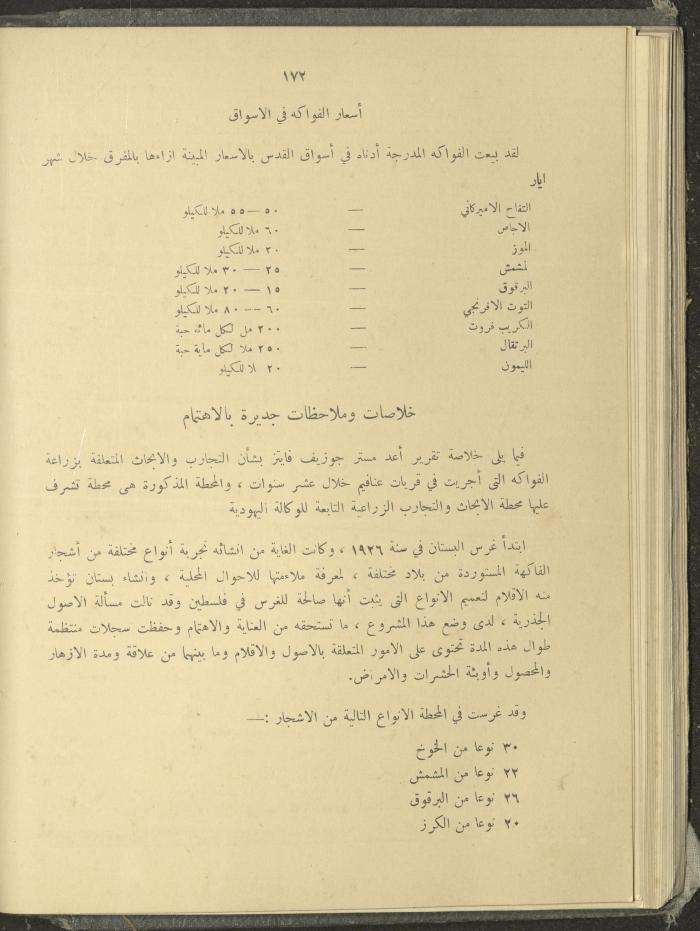 ١٧٢
أسعار الفواكه في الاسواق
لقد بيعت الفواكه المدرجة أدناه في أسواق القدس بالاسعار المبينة ازاءها بالمفرق خلال شهر
ايار
التفاح الاميركاني — ٥٠—٥٥ ملا للكيلو
الاجاص — ٦٠ ملا للكيلو
الموز — ٢٠ ملا للكيلو
لمشمش — ٢٥ — ٣٠ ملا للكيلو
البرقوق — ١٥ — ٢٠ ملا للكيلو
التوت الافرنجي — ٦٠ — ٨٠ ملا للكيلو
الكريب فروت — ٢٠٠ مل لكل مائة حبة
البرتقال — ٢٥٠ ملا لكل ماية حبة
الليمون — ٢٠ لا للكيلو
خلاصات وملاحظات جديرة بالاهتمام
فيما يلى خلاصة تقرير أعد مستر جوزيف فايتز بشأن التجارب والابحاث المتعلقة بزراعة
الفواكه التى أجريت في قريات عنافيم خلال عشر سنوات ، والمحطة المذكورة هى محطة تشرف
عليها محطة الابحاث والتجارب الزراعية التابعة للوكالة اليهودية
ابتدأ غرس البستان في سنة ١٩٢٦ ، وكانت الغاية من انشائه تجربة أنواع مختلفة من أشجار
الفاكهة المستوردة من بلاد مختلفة ، لمعرفة ملاءمتها للاحوال المحلية ، وانشاء بستان تؤخذ
منه الاقلام لتعميم الانواع التى يثبت أنها صالحة للغرس في فلسطين وقد نالت مسألة الاصول
الجذرية ، لدى وضع هذا المشروع ، ما تستحقه من العناية والاهتمام وحفظت سجلات منتظمة
طوال هذه المدة تحتوى على الامور المتعلقة بالاصول والاقلام وما بينهما من علاقة ومدة الازهار
والمحصول وأوبئة الحشرات والامراض.
وقد غرست في المحطة الانواع التالية من الاشجار :—
٣٠ نوعا من الخوخ
٢٢ نوعا من المشمش
٢٦ نوعا من البرقوق
٢٠ نوعا من الكرز